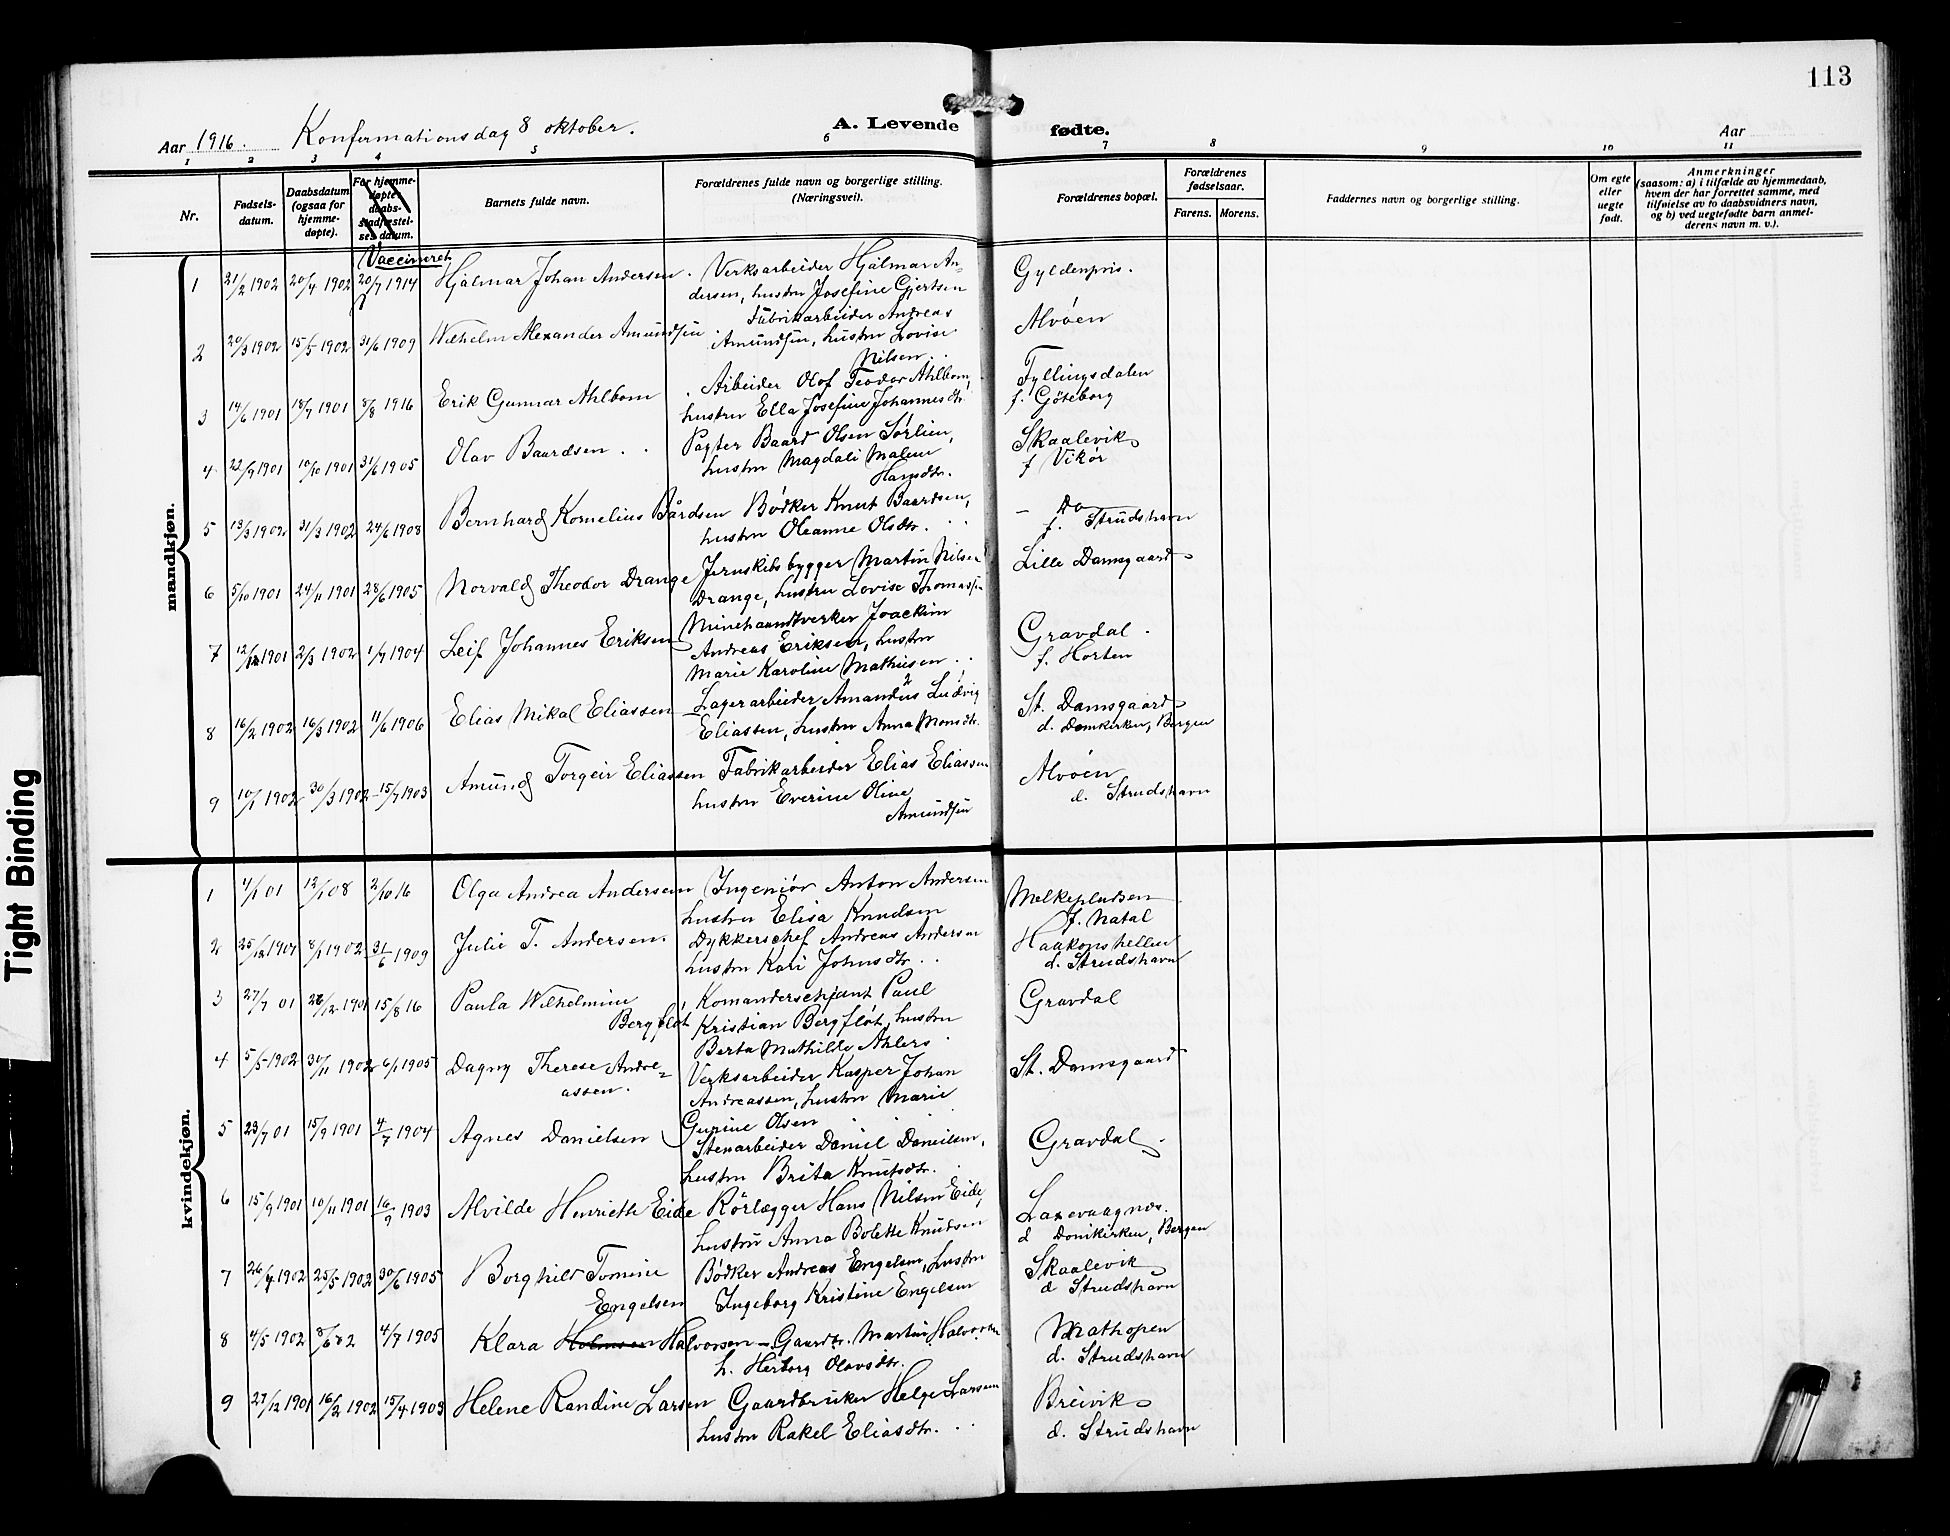 113
Aar 1916. Konfermationsdag 8 oktober. A. Levende fødte. Aar
1 2 3 4 5 6 7 8 9 10 11
Nr.
Fødsels-
datum.
Daabsdatum
(ogsaa for
hjemme-
døpte).
For hjemme-
døpte
daabs-
stadfæstel-
ses datum.
Vaccineret
Barnets fulde navn.
Forældrenes fulde navn og borgerlige stilling.
(Næringsvei).
Forældrenes bopæl.
Forældrenes
fødselsaar.
Farens. Morens.
Faddernes navn og borgerlige stilling.
Om egte
eller
uegte
født.
Anmerkninger
(saasom: a) i tilfælde av hjemmedaab,
hvem der har forrettet samme, med
tilføielse av to daabsvidners navn,
og b) ved uegtefødte barn anmel-
derens navn m. v.).
mandkjøn.
1 21/2 1902 20/4 1902 20/7 1914 Hjalmar Johan Andersen. Verksarbeider Hjalmar An- Gyldenpris.
dersen, hustru Josefine Gjertsen
2 20/3 1902 15/5 1902 31/6 1909 Wilhelm Alexander Amundsen Fabrikarbeider Andreas Alvøen
Amundsen, hustru Lovise
Nilsen.
3 14/6 1901 18/7 1901 8/8 1916 Erik Gunnar Ahlbom Arbeider Olof Teodor Ahlbom, Fyllingsdalen
hustru Ella Josefine Johannesdtr. f. Göteborg
4 22/9 1901 10/10 1901 31/6 1905 Olav Baardsen Pagter Baard Olsen Sørlien, Skaalevik
hustru Magdali Malene f Vikør
Hansdtr.
5 13/3 1902 31/3 1902 24/6 1908 Bernhard Kornelius Bårdsen Bødker Knut Baardsen, - Do
hustru Oleanne Olsdtr. f. Strudshavn
6 5/10 1901 24/11 1901 28/6 1905 Norvald Theodor Drange Jernskibsbygger Martin Nilsen Lille Damsgaard
Drange, hustru Lovise Thomassen
7 12/12 1901 2/3 1902 1/7 1904 Leif Johannes Eriksen Minehaandtverker Joackim Gravdal.
Andreas Eriksen, hustru f. Horten
Marie Karoline Mathisen
8 16/2 1902 16/3 1902 11/6 1906 Elias Mikal Eliassen Lagerarbeider Amandus 2 Ludvig 1 St. Damsgaard
Eliassen, hustru Anna Monsdtr. d. Domkirken, Bergen
9 10/1 1902 30/3 1902 15/7 1903 Amund Torgeir Eliassen Fabrikarbeider Elias Eliassen Alvøen
hustru Everine Oline d. Strudshavn
Amundsen
kvindekjøn.
1 4/1 01 12/1 08 2/10 16 Olga Andrea Andersen Ingeniør Anton Andersen Melkepladsen
hustru Elisa Knudsen f. Natal
2 25/12 1901 8/1 1902 31/6 1909 Julie T. Andersen. Dykkerschef Andreas Andersen Haakonshellen
hustru Kari Johnsdtr. d. Strudshavn
3 27/7 01 26/12 1901 15/8 16 Paula Wilhelmine Komandersersjant Paul Gravdal
Bergfløt Kristian Bergfløt, hustru
Berta Mathilde Ahlers
4 5/5 1902 30/11 1902 6/1 1905 Dagny Therese Andre- Verksarbeider Kasper Johan St. Damsgaard
assen. Andreassen, hustru Marie
Gurine Olsen
5 23/7 01 15/9 1901 4/7 1904 Agnes Danielsen Stenarbeider Daniel Danielsen, Gravdal
hustru Brita Knutsdtr.
6 15/9 1901 10/11 1901 16/9 1903 Alvilde Henriette Eide Rörlægger Hans Nilsen Eide, Laxevaagnes.
hustru Anna Bolette Knudsen d Domkirken, Bergen
7 26/4 1902 25/5 1902 30/6 1905 Borghild Tomine Bødker Andreas Engelsen, hustru Skaalevik
Engelsen Ingeborg Kristine Engelsen d Strudshavn
8 4/5 1902 8/6 02 4/7 1905 Klara Halvorsen Gaardbr. Martin Halvorsen Mathopen
h. Herborg Olavsdtr. d. Strudshavn
9 27/12 1901 16/2 1902 15/4 1903 Helene Randine Larsen Gaardbruker Helge Larsen Breivik
hustru Rakel Eliasdtr. d. Strudshavn
Tight Binding